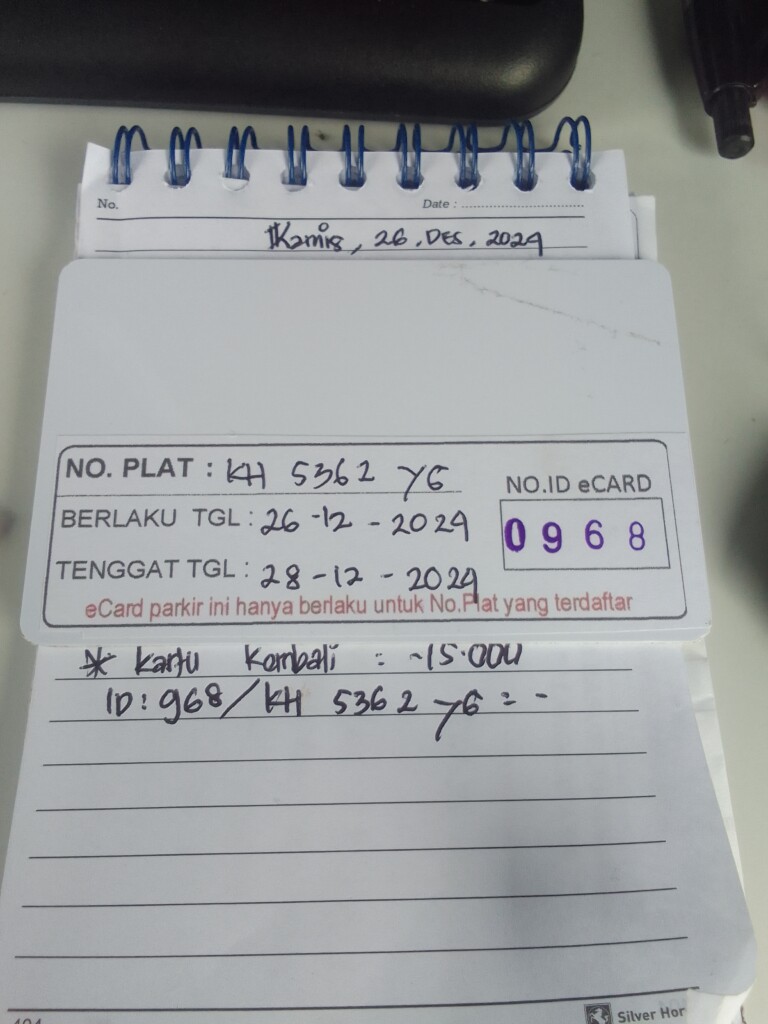 No. Date :
Kamis, 26. DES. 2024
NO. PLAT : KH 5362 YG
NO.ID eCARD
BERLAKU TGL : 26-12-2024
0968
TENGGAT TGL : 28-12-2024
eCard parkir ini hanya berlaku untuk No.Plat yang terdaftar
* Kartu Kembali : -15.000
ID: 968/KH 5362 YG = -
Silver Hor